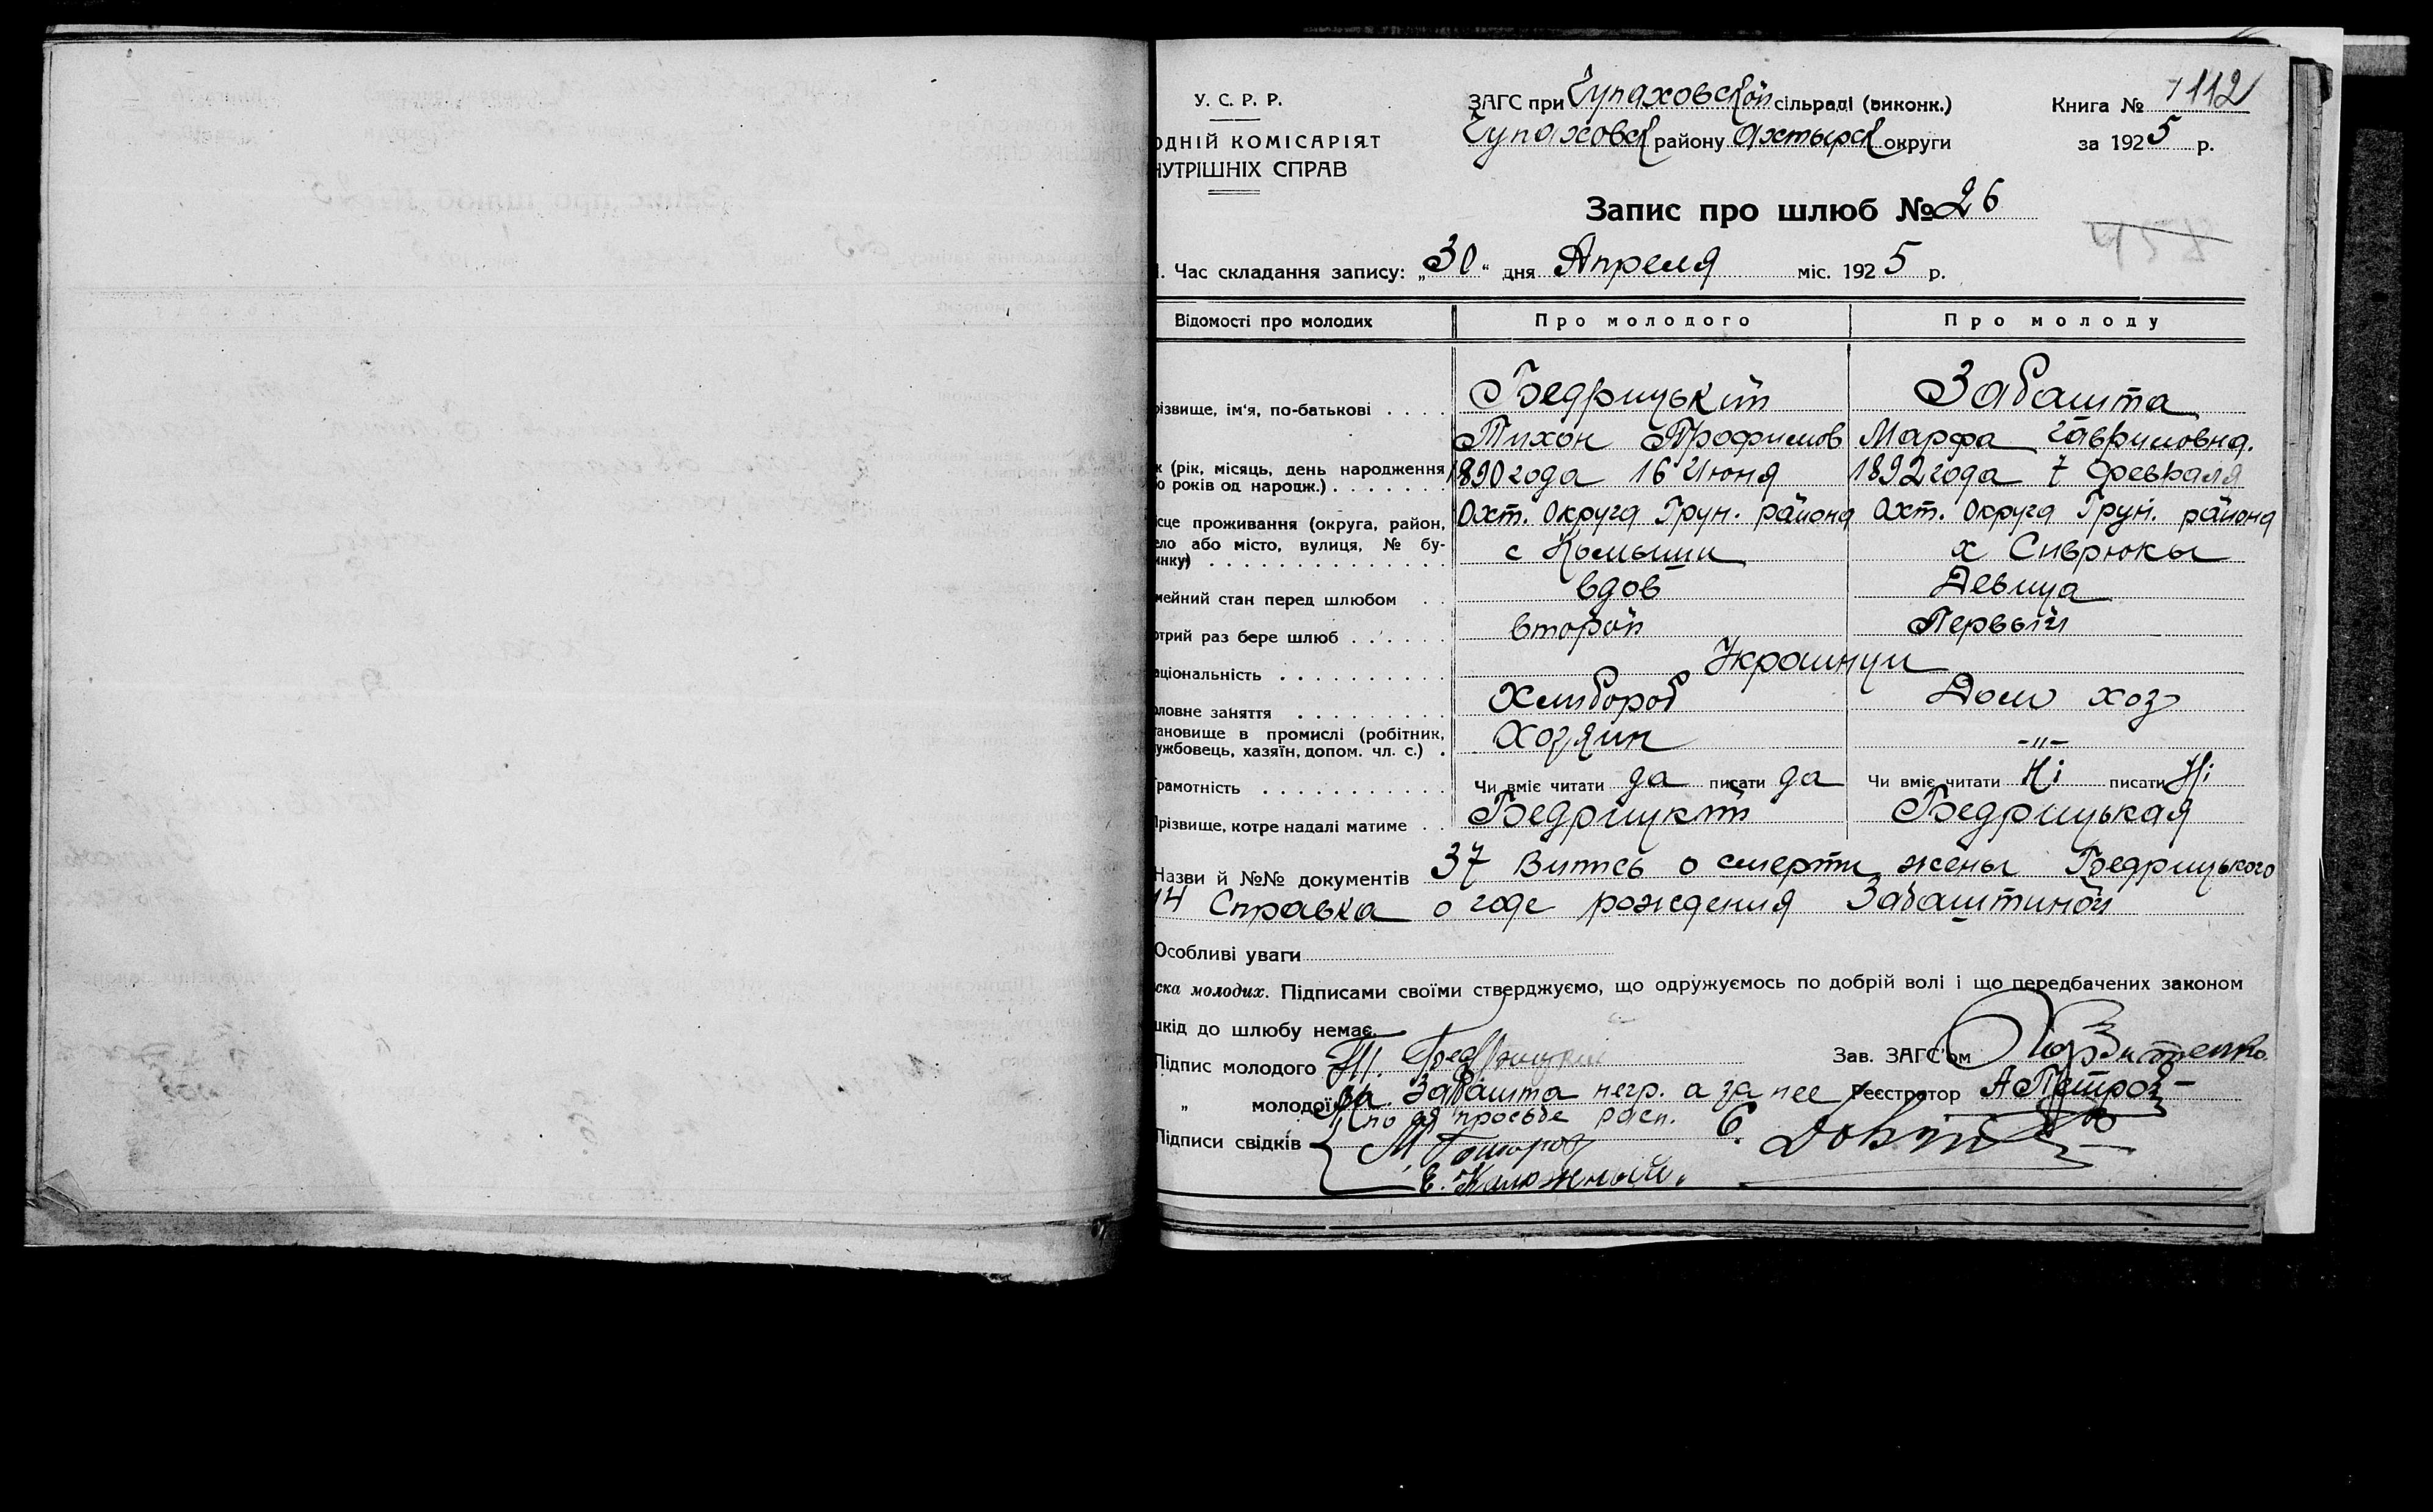 У. С. Р. Р.
ОДНІЙ КОМІСАРІЯТ
НУТРІШНІХ СПРАВ
ЗАГС при Чупаховской сільраді (виконк.)
Чупаховск району Ахтырск округи
Книга № 112
за 1925 р.
Запис про шлюб № 26
458
1. Час складання запису: „30" дня Апреля міс. 1925 р.
Відомості про молодих Про молодого Про молоду
різвище, ім'я, по-батькові . . . . Бедрицький Забашта
Тихон Трофимов Марфа Гавриловна.
к (рік, місяць, день народження 1890 года 16 Июня 1892 года 7 февраля
о років од нарож.) . . . . . . .
ісце проживання (округа, район, Охт. Округа Грун. района Охт. Округа Грун. района
ело або місто, вулиця, № бу- с Комыши х Сиврюкы
инку) . . . . . . . . . . . . . .
мейний стан перед шлюбом . . вдов Девица
отрий раз бере шлюб . . . . . . второй Первый
аціональність . . . . . . . . . . Украинци
оловне заняття . . . . . . . . . Хлибороб Дом хоз
тановище в промислі (робітник, Хозяин -"-
ужбовець, хазяїн, допом. чл. с.) .
рамотність . . . . . . . . . . . Чи вміє читати да писати да Чи вміє читати Ні писати Ні
Прізвище, котре надалі матиме . . Бедрицкий Бедрицькая
Назви й №№ документів 37 Витпсь о смерти жены Бедрицького
14 Справка о годе рождения Забаштиной
Особливі уваги
ска молодих. Підписами своїми стверджуємо, що одружуємось по добрій волі і що передбачених законом
шкід до шлюбу немає.
Підпис молодого Т. Бедрицкий Зав. ЗАГС'ом
„ молодої За Забашта негр. а за нее Реєстратор А Петров
по ея просьбе расп. Е.
Підписи свідків М.
Е. Калюжный.